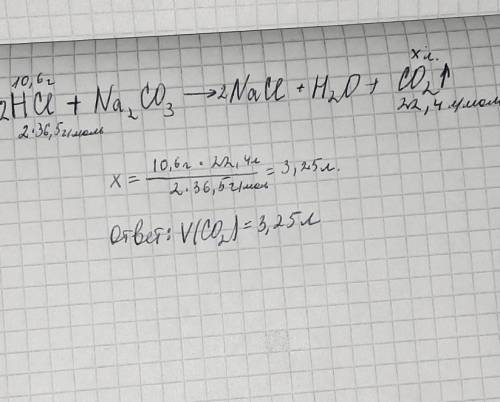 10,6г хл.
2HCl + Na₂CO₃ → 2NaCl + H₂O + CO₂↑
2·36,5г/моль 22,4 л/моль
x = 10,6г · 22,4л / 2·36,5г/моль = 3,25л.
Ответ: V(CO₂) = 3,25л